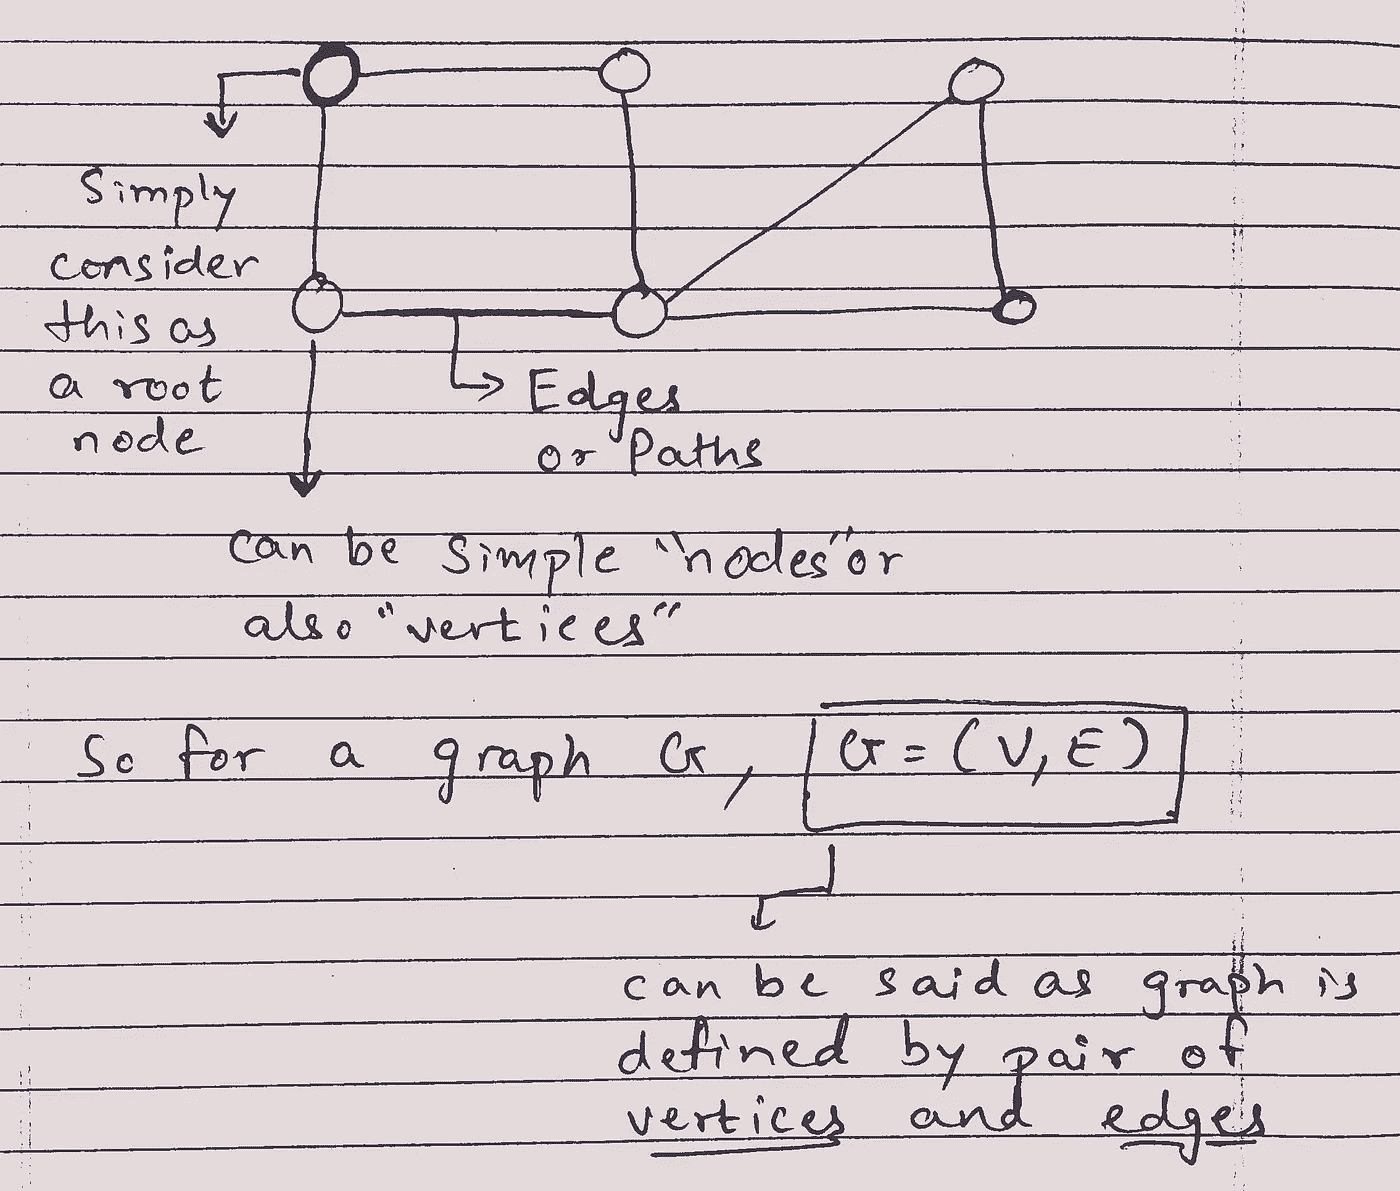 Simply
consider
this as
a root
node
Edges
or Paths
can be simple "nodes" or
also "vertices"
So for a graph G, G = (V, E)
can be said as graph is
defined by pair of
vertices and edges